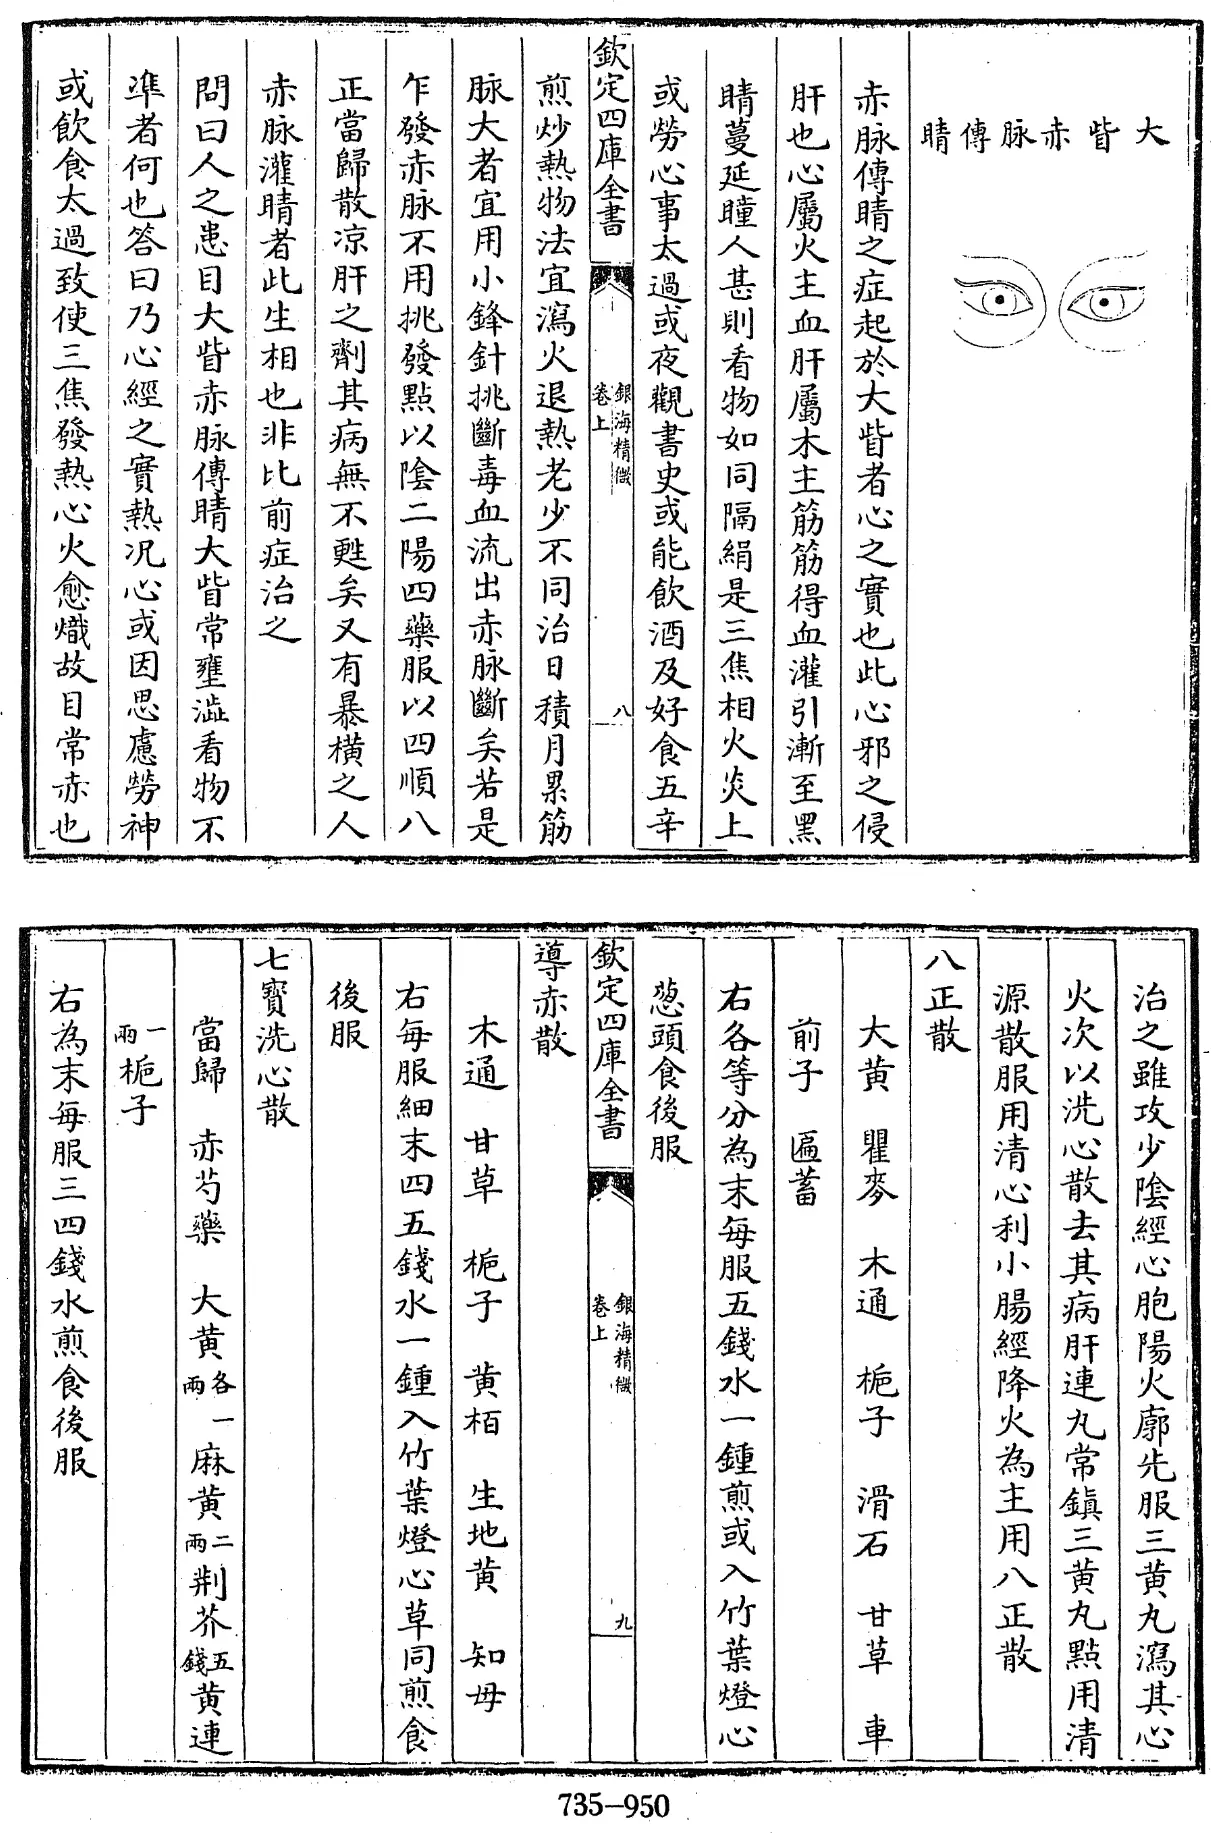 大眥赤脉傳睛
赤脉傳睛之症起於大眥者心之實也此心邪之侵
肝也心屬火主血肝屬木主筋筋得血灌引漸至黑
睛蔓延瞳人甚則看物如同隔絹是三焦相火炎上
或勞心事太過或夜觀書史或能飲酒及好食五辛
欽定四庫全書
銀海精微
卷上
八
煎炒熱物法宜瀉火退熱老少不同治日積月累筋
脉大者宜用小鋒針挑斷毒血流出赤脉斷矣若是
乍發赤脉不用挑發點以陰二陽四藥服以四順八
正當歸散凉肝之劑其病無不甦矣又有暴橫之人
赤脉灌睛者此生相也非比前症治之
問曰人之患目大眥赤脉傳睛大眥常壅澁看物不
準者何也答曰乃心經之實熱况心或因思慮勞神
或飲食太過致使三焦發熱心火愈熾故目常赤也
治之雖攻少陰經心胞陽火廓先服三黄丸瀉其心
火次以洗心散去其病肝連丸常鎮三黄丸點用清
源散服用清心利小腸經降火為主用八正散
八正散
大黄 瞿麥 木通 梔子 滑石 甘草 車
前子 匾蓄
右各等分為末每服五錢水一鍾煎或入竹葉燈心
葱頭食後服
欽定四庫全書
銀海精微
卷上
九
導赤散
木通 甘草 梔子 黄栢 生地黄 知母
右每服細末四五錢水一鍾入竹葉燈心草同煎食
後服
七寶洗心散
當歸 赤芍藥 大黄各一兩 麻黄二兩 荆芥五錢 黄連
一兩 梔子
右為末每服三四錢水煎食後服
735-950